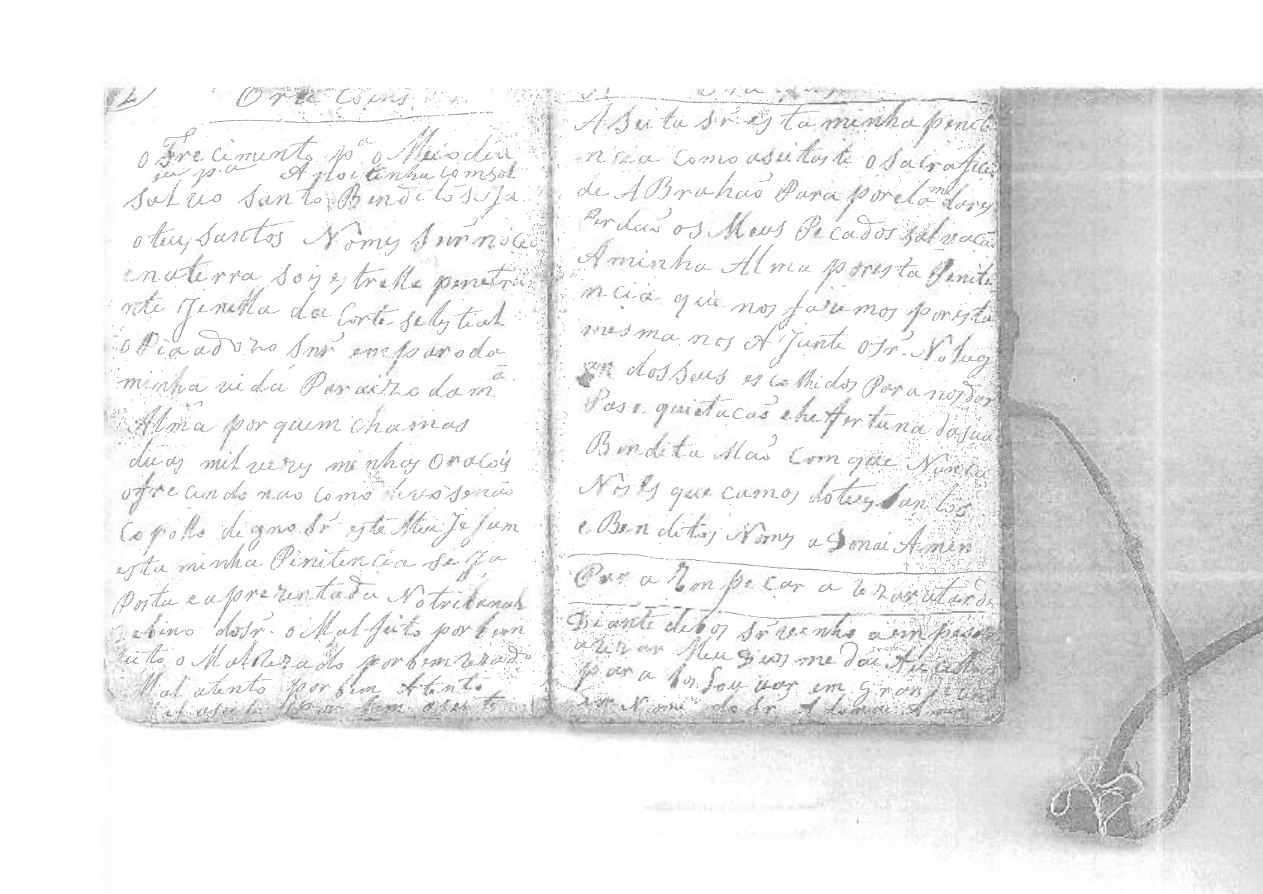 2
Oracoins
oFrecimento pª o Meiodia
eu pª a Anoitinha com sol
salvo santo Bendito seja
o teu santos Nomes Snr no ceo
enaterra sois estrella penetra
nte Jenella da Corte selestial
o Piaadozo Snr emparo da
minha vida Paraizo da mª
Alma por quem chamas
duas mil vezes minhas oracois
ofrecendo nao como
digno Sr este Meu Jejum
esta minha Pinitencia seja
Posta e aprezentada No tribunal
devino do Sr. o Mal feito por bem
feito o Mal Rezado por bem rezado
Mal atento por bem Atento
Mal aseito por bem aseito
Aseita Sr esta minha penit
ncia como aseitaste o sacraficio
de ABrahaõ Para por ela mª dares
Perdaõ os Meus Pecados salvacaõ
Aminha Alma por esta Penite
ncia que nos fazemos por esta
mesma nos A Junte o Sr. No lug
ar dos Seus escolhidos Para nos dar
Pas e quietacaõ e he ffertuna da sua
Bendita Maõ Com que Nunca
Nos es que camos do teus santos
e Benditos Nomes aDonai Amen
Para Empecar a rezar atarde
Diante de vos Sr venho a empesar
a rezar Meu Deus me dai Au
para vos Louvar em
em Nome do Sr Adonai Amen